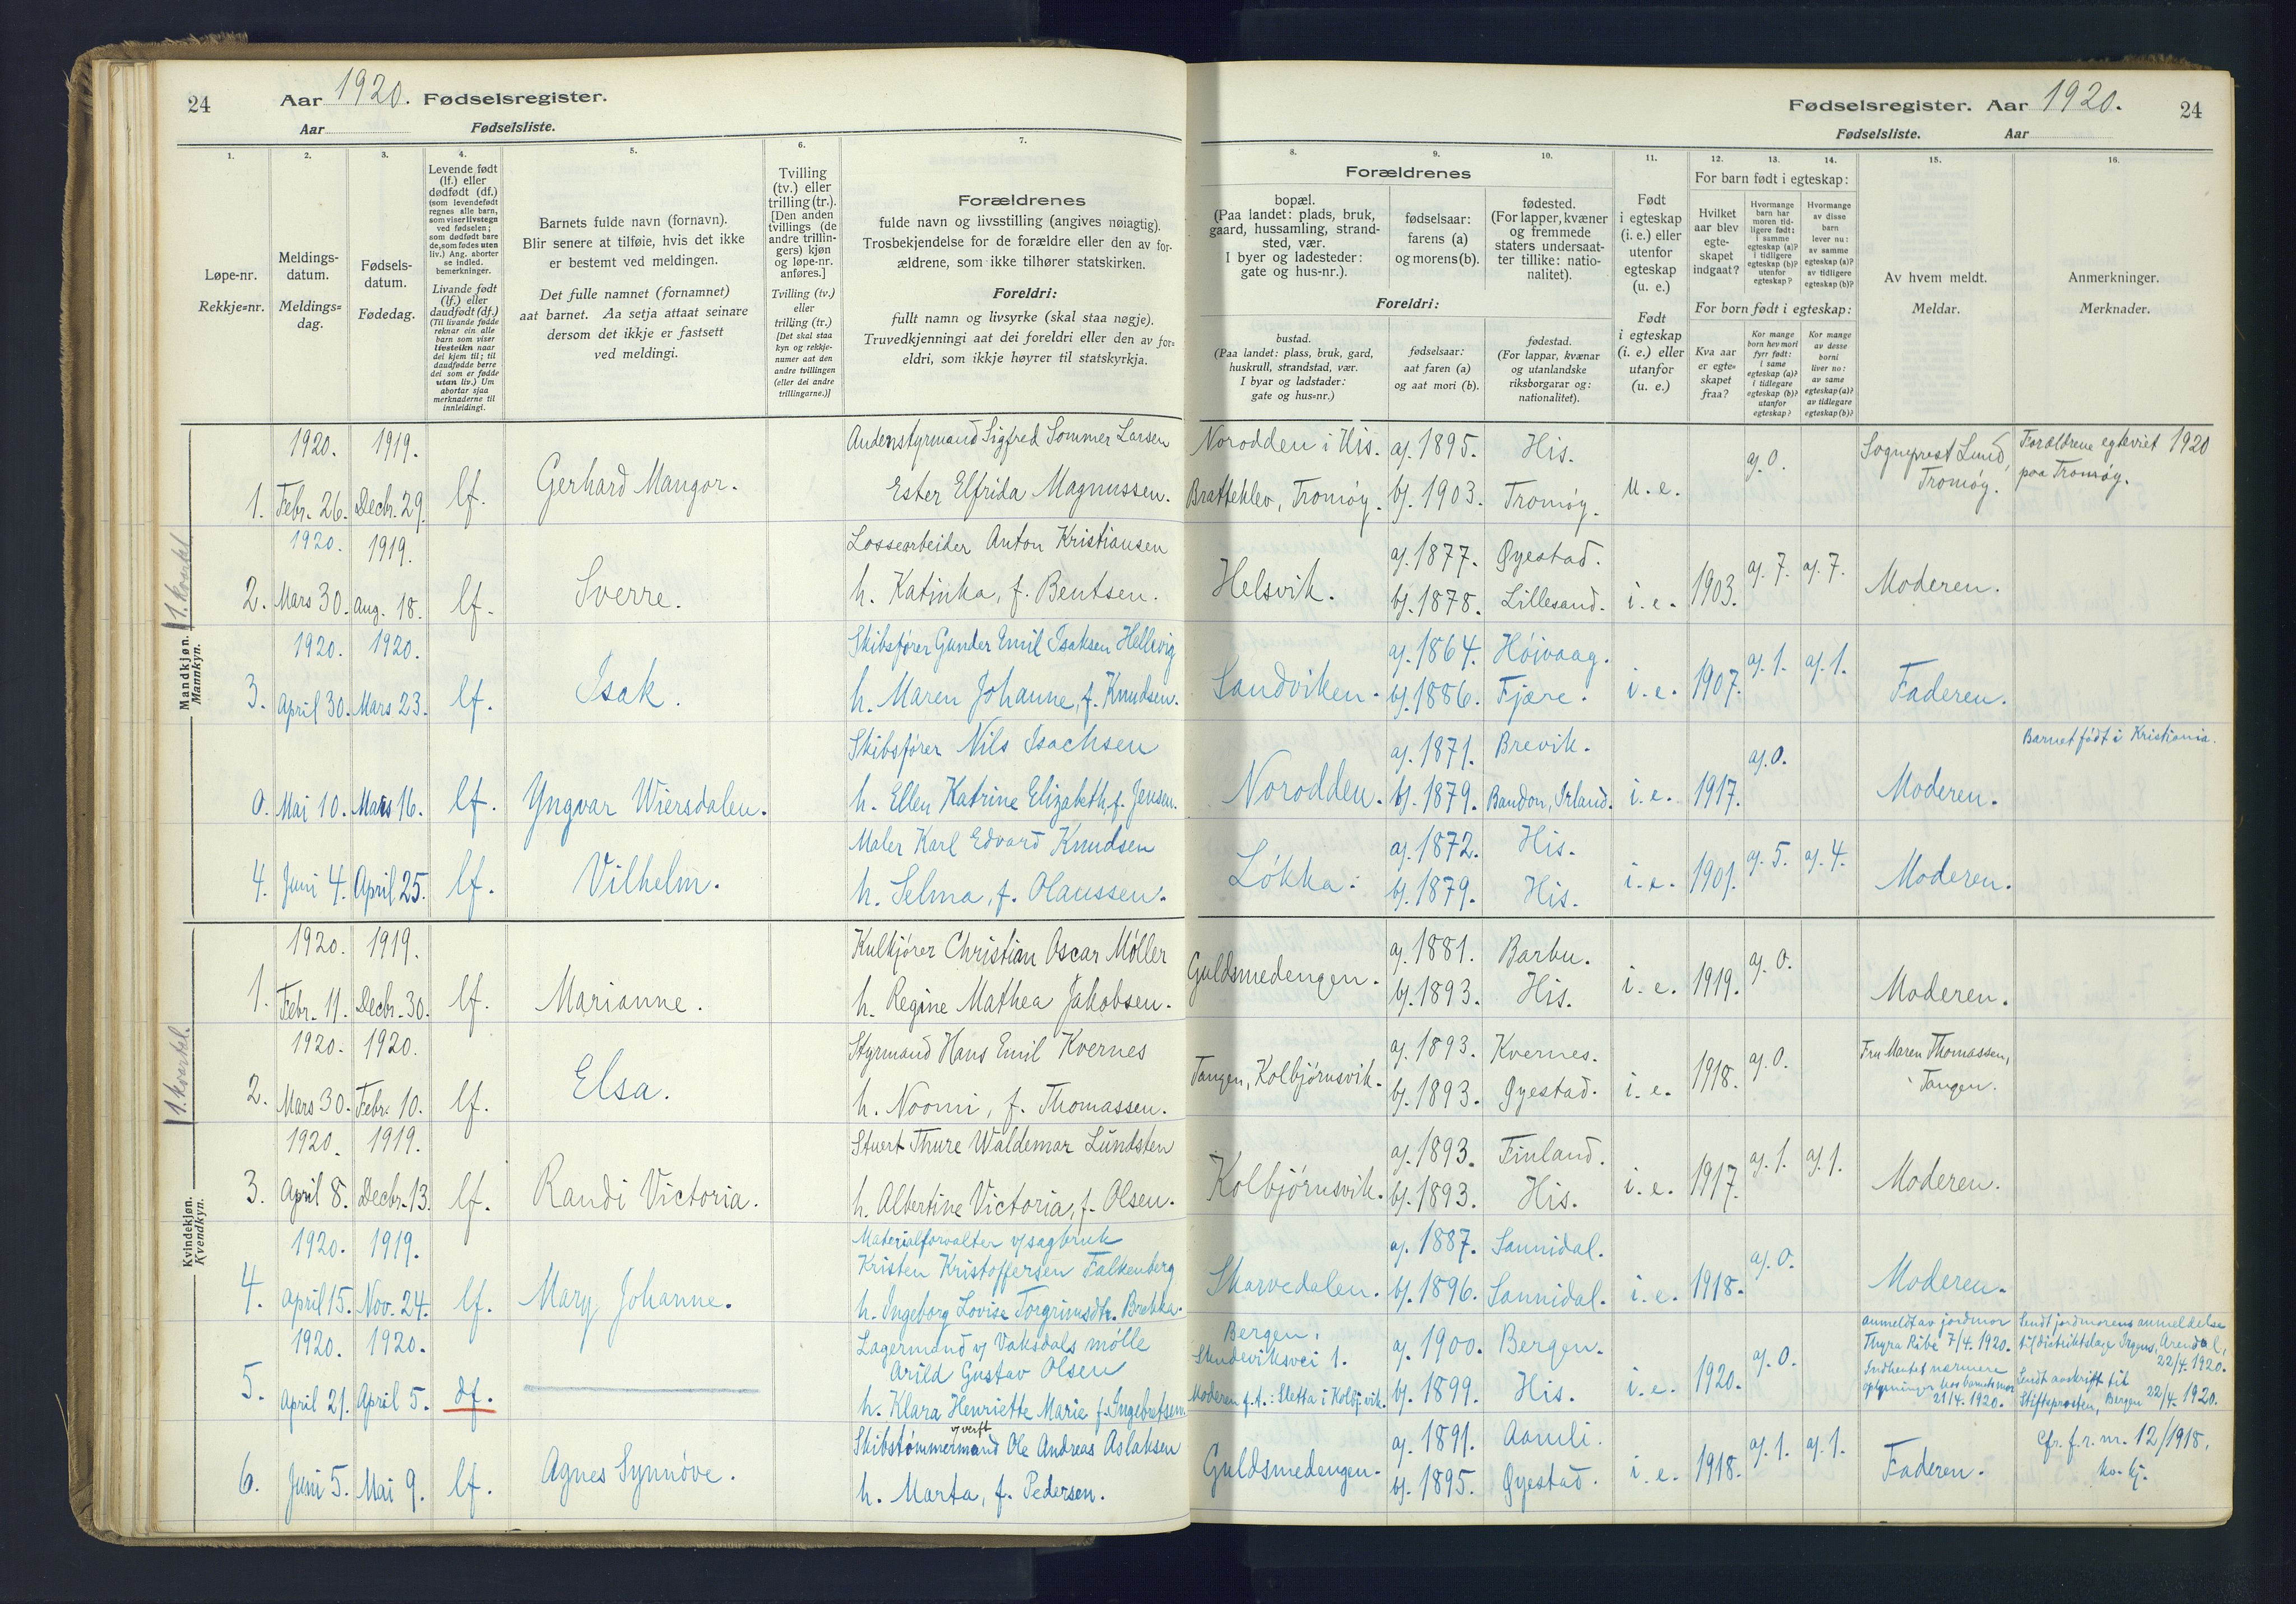 24
Aar 1920. Fødselsregister.
Aar
Fødselsliste.
1.
Løpe-nr.
Rekkje=nr.
2.
Meldings-
datum.
Meldings=
dag.
3.
Fødsels-
datum.
Fødedag.
4.
Levende født
(lf.) eller
dødfødt (df.)
(som levendefødt
regnes alle barn,
som viser livstegn
ved fødselen;
som dødfødt bare
de, som fødes uten
liv.) Ang. aborter
se indled.
bemerkninger.
Livande født
(lf.) eller
daudfødt (df.)
(Til livande fødde
reknar ein alle
barn som viser
livsteikn naar
dei kjem til; til
daudfødde berre
dei som er fødde
utan liv.) Um
abortar sjaa
merknaderne til
innleidingi.
5.
Barnets fulde navn (fornavn).
Blir senere at tilføie, hvis det ikke
er bestemt ved meldingen.
Det fulle namnet (fornamnet)
aat barnet. Aa setja attaat seinare
dersom det ikkje er fastsett
ved meldingi.
6.
Tvilling
(tv.) eller
trilling (tr.).
[Den anden
tvillings (de
andre trillin-
gers) kjøn
og løpe-nr.
anføres.]
Tvilling (tv.)
eller
trilling (tr.)
[Det skal staa
kyn og rekkje-
numer aat den
andre tvillingen
(eller dei andre
trillingarne.)]
7.
Forældrenes
fulde navn og livsstilling (angives nøiagtig).
Trosbekjendelse for de forældre eller den av for-
ældrene, som ikke tilhører statskirken.
Foreldri:
fullt namn og livsyrke (skal staa nøgje).
Truvedkjenningi aat dei foreldri eller den av for=
eldri, som ikkje høyrer til statskyrkja.
Mandkjøn.
Mannkyn.
1. kvartal
1920. 1919.
1. Febr. 26. Decbr. 29. lf. Gerhard Mangor.
Andenstyrmand Sigfred Sommer Larsen
Ester Elfrida Magnussen.
1920. 1919.
2. Mars 30. Aug. 18. lf. Sverre.
Lossearbeider Anton Kristiansen
h. Katinka, f. Bentsen.
1920. 1920.
3. April 30. Mars 23. lf. Isak.
Skibsfører Gunder Emil Isaksen Hellevig
h. Maren Johanne, f. Knudsen.
0. Mai 10. Mars 16. lf. Yngvar Wiersdalen.
Skibsfører Nils Isachsen
h. Ellen Katrine Elizabeth, f. Jensen.
4. Juni 4. April 25. lf. Vilhelm.
Maler Karl Edvard Knudsen
h. Selma, f. Olaussen.
Kvindekjøn.
Kvendkyn.
1. kvartal.
1920. 1919.
1. Febr. 11. Decbr. 30. lf. Marianne.
Kulkjører Christian Oscar Møller
h. Regine Mathea Jakobsen.
1920. 1920.
2. Mars 30. Febr. 10. lf. Elsa.
Styrmand Hans Emil Kvernes
h. Noomi, f. Thomassen.
1920. 1919.
3. April 8. Decbr. 13. lf. Randi Victoria.
Stuert Thure Waldemar Lundsten
h. Albertine Victoria, f. Olsen.
1920. 1919.
4. April 15. Nov. 24. lf. Mary Johanne.
Materialforvalter v/ sagbruk
Kristen Kristoffersen Falkenberg
h. Ingeborg Lovise Torgrimsdtr. Brekka.
1920. 1920.
5. April 21. April 5. df.
Lagermand v/ Vaksdals mølle
Arild Gustav Olsen
h. Klara Henriette Marie f. Ingebretsen.
6. Juni 5. Mai 9. lf. Agnes Synnøve.
v/ verft
Skibstømmermand Ole Andreas Aslaksen
h. Marta, f. Pedersen.
Fødselsregister. Aar 1920.
24
Fødselsliste.
Aar
8.
9.
10.
Forældrenes
bopæl.
(Paa landet: plads, bruk,
gaard, hussamling, strand-
sted, vær.
I byer og ladesteder:
gate og hus-nr.).
fødselsaar:
farens (a)
og morens (b).
fødested.
(For lapper, kvæner
og fremmede
staters undersaat-
ter tillike: natio-
nalitet).
Foreldri:
bustad.
(Paa landet: plass, bruk, gard,
huskrull, strandstad, vær.
I byar og ladstader:
gate og hus=nr.)
fødselsaar:
aat faren (a)
og aat mori (b).
fødestad.
(For lappar, kvænar
og utanlandske
riksborgarar og:
nationalitet).
11.
Født
i egteskap
(i. e.) eller
utenfor
egteskap
(u. e.)
Født
i egteskap
(i. e.) eller
utanfor
(u. e.)
12.
13.
14.
For barn født i egteskap:
Hvilket
aar blev
egte-
skapet
indgaat?
Hvormange
barn har
moren tid-
ligere født:
i samme
egteskap (a)?
i tidligere
egteskap (b)?
utenfor
egteskap?
Hvormange
av disse
barn
lever nu:
av samme
egteskap (a)?
av tidligere
egteskap (b)?
For born født i egteskap:
Kva aar
er egte=
skapet
fraa?
Kor mange
born hev mori
fyrr født:
i same
egteskap (a)?
i tidlegare
egteskap (b)?
utanfor
egteskap?
Kor mange
av desse
borni
liver no:
av same
egteskap (a)?
av tidlegare
egteskap (b)?
15.
Av hvem meldt.
Meldar.
16.
Anmerkninger.
Merknader.
Norodden i His. a). 1895. His. a). 0. Sogneprest Lund, Tromøy. Forældrene egteviet 1920
Bratteklev, Tromøy. b). 1903. Tromøy. u. e. paa Tromøy.
a). 1877. Øyestad. a). 7. a). 7.
Helsvik. b). 1878. Lillesand. i. e. 1903. Moderen.
a). 1864. Høivaag. a). 1. a). 1.
Sandviken. b). 1886. Fjære. i. e. 1907. Faderen.
a). 1871. Brevik. a). 0. Barnet født i Kristiania.
Norodden. b). 1879. Bandon, Irland. i. e. 1917. Moderen.
a). 1872. His. a). 5. a). 4.
Løkka. b). 1879. His. i. e. 1901. Moderen.
Guldsmedengen. a). 1881. Barbu. a). 0.
b). 1893. His. i. e. 1919. Moderen.
a). 1893. Kvernes. a). 0. Fru Maren Thomassen,
Tangen, Kolbjørnsvik. b). 1893. Øyestad. i. e. 1918. Tangen.
a). 1893. Finland. a). 1. a). 1.
Kolbjørnsvik. b). 1893. His. i. e. 1917. Moderen.
a). 1887. Sannidal. a). 0.
Skarvedalen. b). 1896. Sannidal. i. e. 1918. Moderen.
Bergen,
Skudeviksvei 1. a). 1900. Bergen. a). 0.
Moderen f. t.: Sletta i Kolbj.vik. b). 1899. His. i. e. 1920.
Anmeldt av jordmor
Thyra Ribe 7/4. 1920.
Indhentet nærmere
oplysninger hos barnets mor
21/4. 1920.
Sendt jordmorens anmeldelse
til distriktslæge Irgens, Arendal,
22/4. 1920.
Sendt avskrift til
Stiftsprosten, Bergen 22/4. 1920.
a). 1891. Aamli. a). 1. a). 1. Cfr. f. r. nr. 12/1918,
Guldsmedengen. b). 1895. Øyestad. i. e. 1918. Faderen. kv. kj.